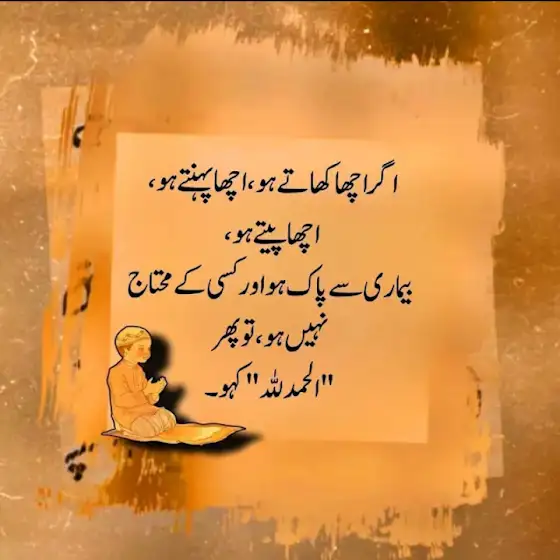 اگر اچھا کھاتے ہو، اچھا پہنتے ہو،
اچھا پیتے ہو،
بیماری سے پاک ہو اور کسی کے محتاج
نہیں ہو، تو پھر
"الحمدللہ" کہو۔